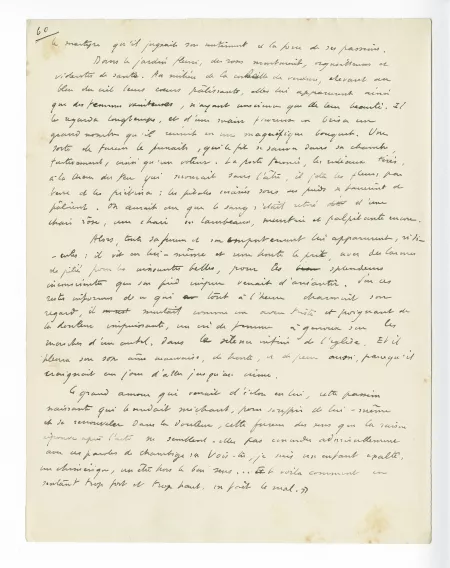 60
le martyre qu'il jugeait son entêtement et la force de ses passions.
Dans le jardin fleuri, des roses montraient, orgueilleuses et
violentes de santé. Au milieu de la de verdure, élevant au
bleu du ciel leurs cœurs pâlissants, elles lui apparurent ainsi
que des femmes, n'ayant conscience que de leur beauté. Il
les regarda longtemps, et d'une main en brisa un
grand nombre qu'il réunit en une magnifique bouquet. Une
sorte de fureur le prenait, qui le fit se sauver dans sa chambre,
furtivement, ainsi qu'un voleur. La porte fermée, les rideaux tirés,
à la lueur du feu qui mourait dans l'âtre, il jeta les fleurs, par
terre et les piétina: les pétales sous ses pieds
On aurait cru que le sang d'une
chair rose, une chair en lambeaux, meurtrie et palpitante encore.
Alors, toute sa fureur et son emportement lui apparurent, ridi-
-cules: il en lui-même et une honte le prit, avec des larmes
de pitié, pour les mourantes belles, pour les splendeurs
inconscientes que son pied venait d'anéantir. Par ces
restes informes de ce qui tout à l'heure charmait son
regard, il montait comme un aveu triste et poignant de
la douleur impuissante, un cri de femme à genoux sur les
marches d'un autel, dans le silence infini de l'église. Et il
pleura sur son âme mauvaise, de honte, et de peur aussi, parce qu'il
craignait un jour d'aller jusqu'au crime.
Le grand amour qui venait d'éclore en lui, cette passion
naissante qui le rendait méchant, pour souffrir de lui-même
et se renouveler dans la douleur, cette fureur des sens que la raison
ne semblent-elles pas concorder admirablement
avec ces paroles de: Vois-tu, je suis un enfant exalté,
un chimérique, un être hors le bon sens... Et voilà comment un
sentant trop fort et trop haut, on fait le mal.